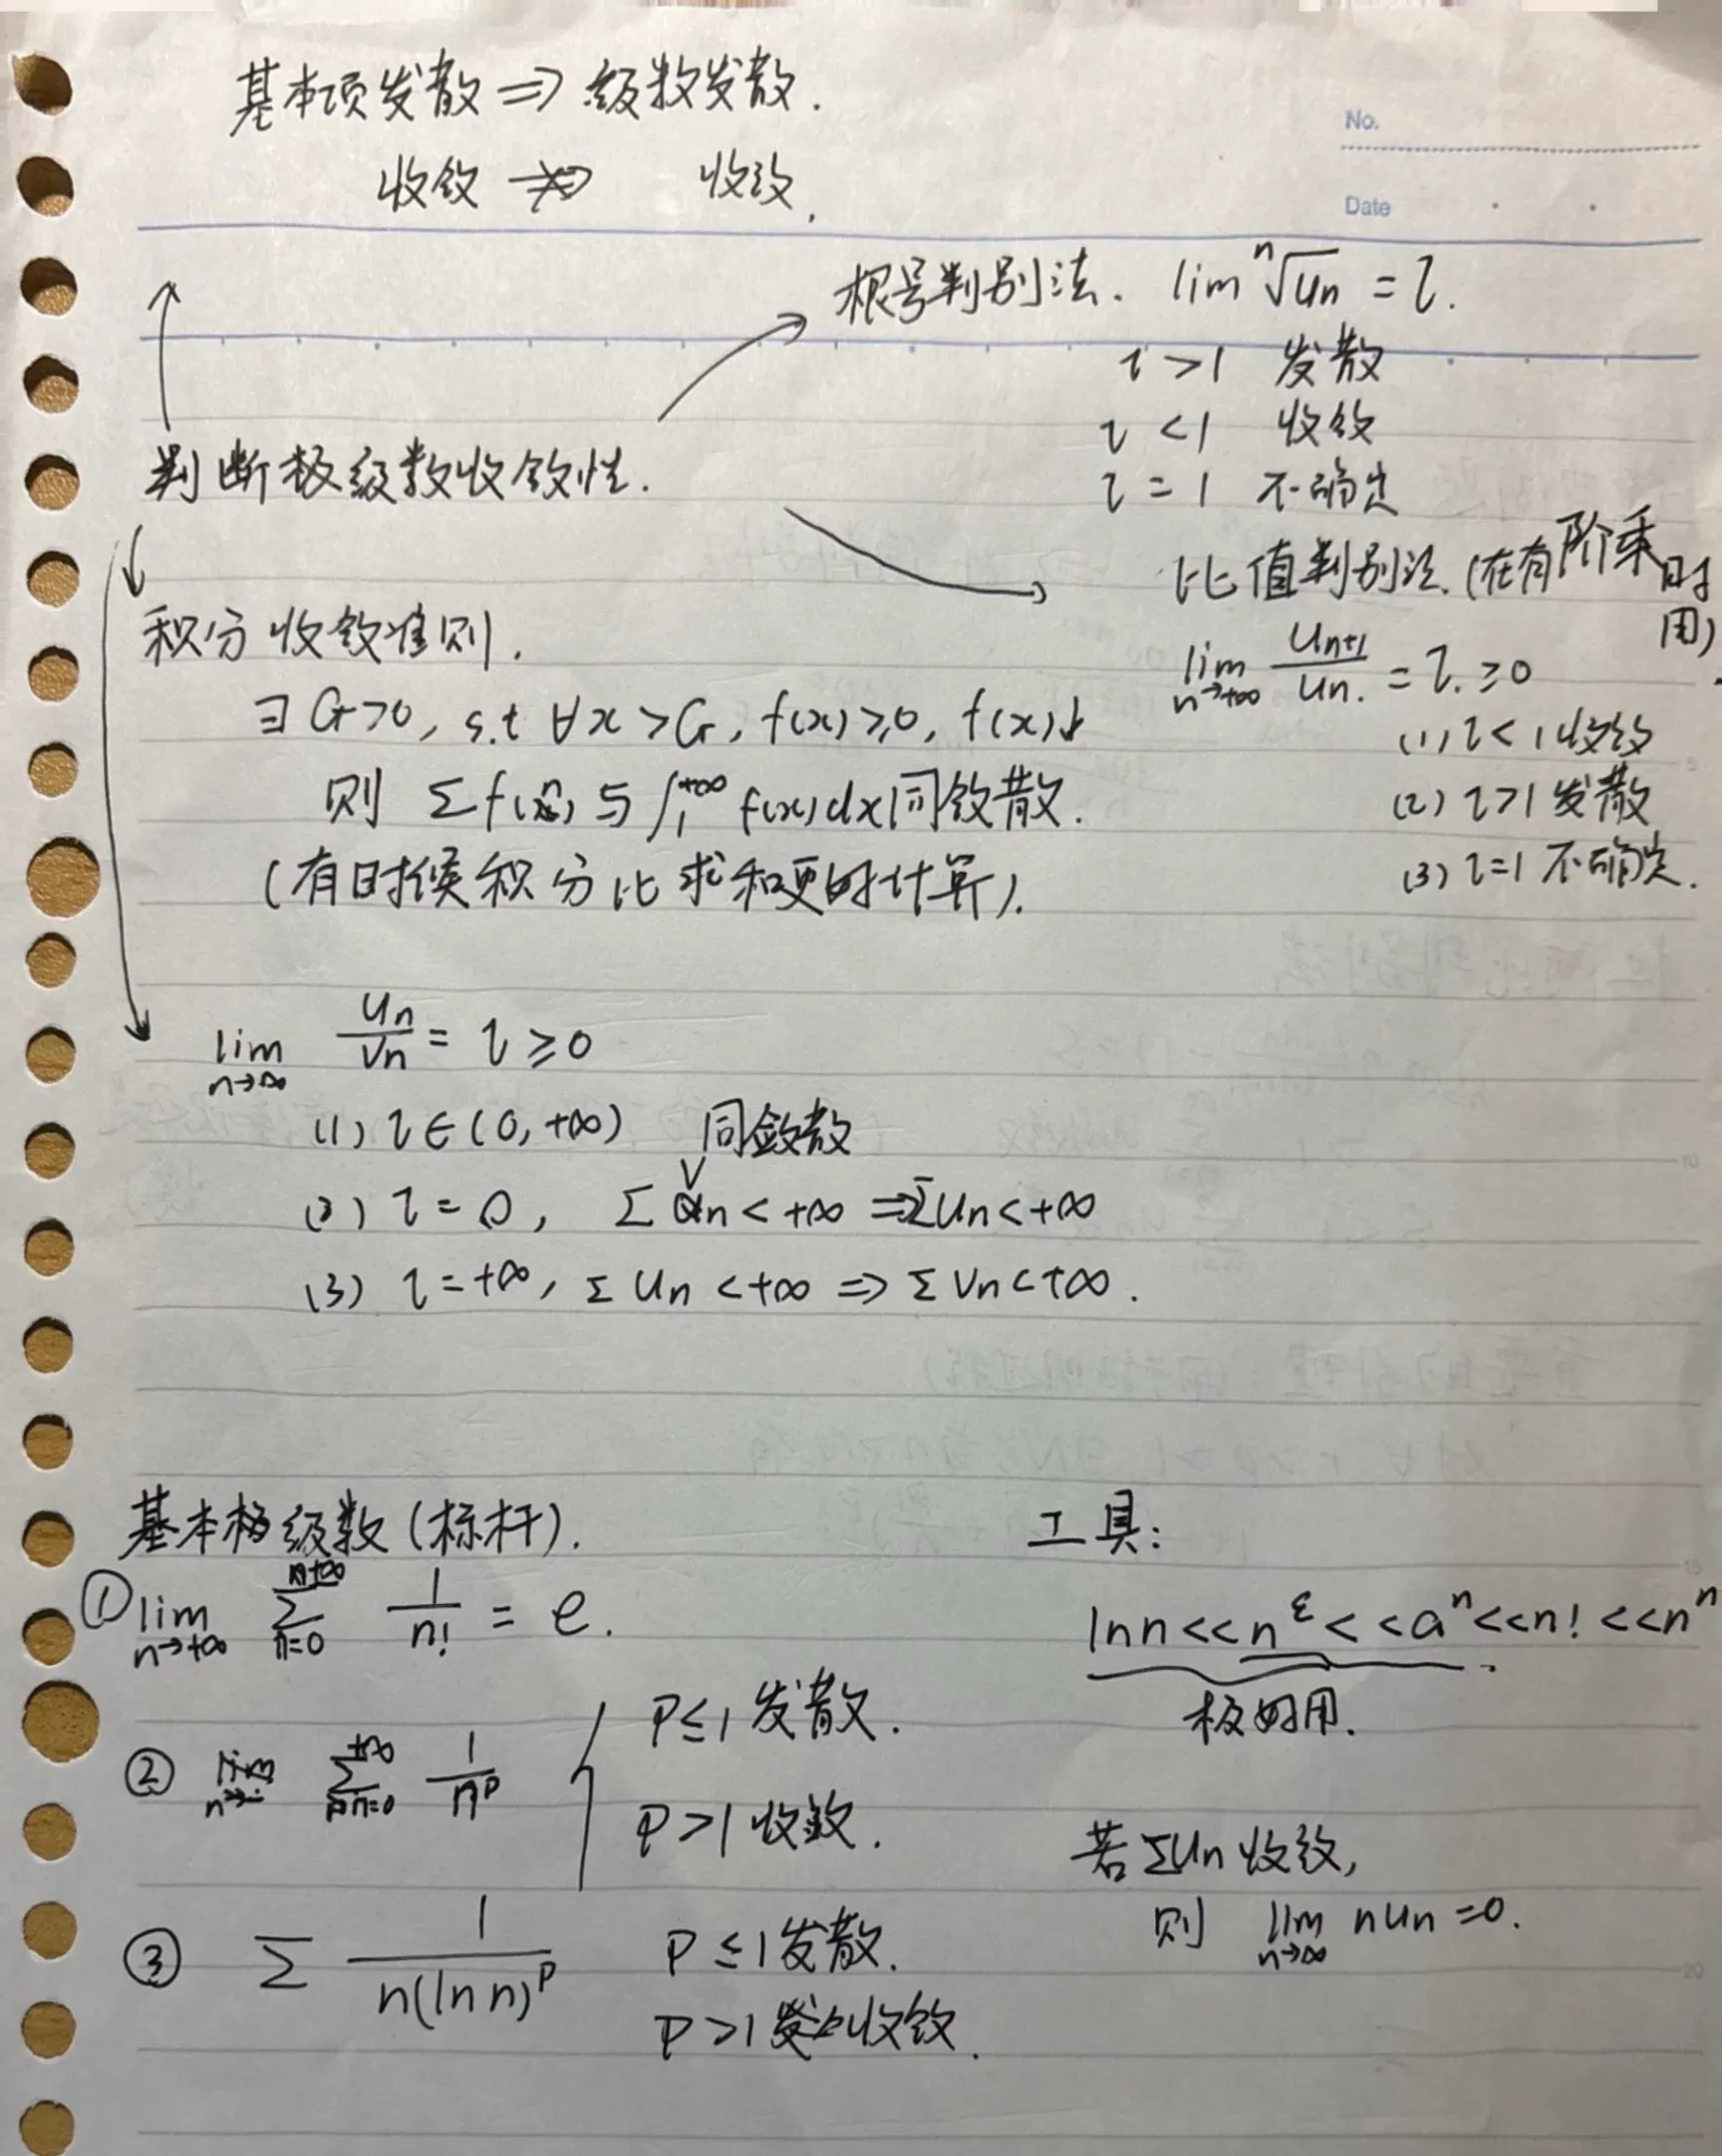 基本项发散 ⇒ 级数发散.
收敛 ⇏ 收敛.
No.
Date
根号判别法. lim ⁿ√un = l.
l > 1 发散
l < 1 收敛
l = 1 不确定
判断极级数收敛性.
比值判别法.(在有阶乘时用)
lim n→+∞ un+1/un. = l. ≥0
(1) l < 1 收敛
(2) l > 1 发散
(3) l = 1 不确定.
积分收敛准则.
∃ G>0, s.t ∀x >G, f(x)≥0, f(x)↓
则 Σf(n) 与 ∫₁^+∞ f(x)dx同敛散.
(有时候积分比求和更好计算).
lim n→∞ un/vn = l ≥ 0
(1) l ∈ (0, +∞) 同敛散
(2) l = 0, Σ vn < +∞ ⇒ Σun < +∞
(3) l = +∞, Σ un < +∞ ⇒ Σ vn < +∞.
基本级数(标杆).
① lim n→+∞ Σ n=0 1/n! = e.
② Σ n=0 +∞ 1/n^p
p≤1 发散.
p>1 收敛.
③ Σ 1/n(ln n)^p
p ≤ 1 发散.
p > 1 收敛.
工具:
ln n << n^ε << a^n << n! << n^n
极好用.
若Σun 收敛,
则 lim n→∞ nun = 0.